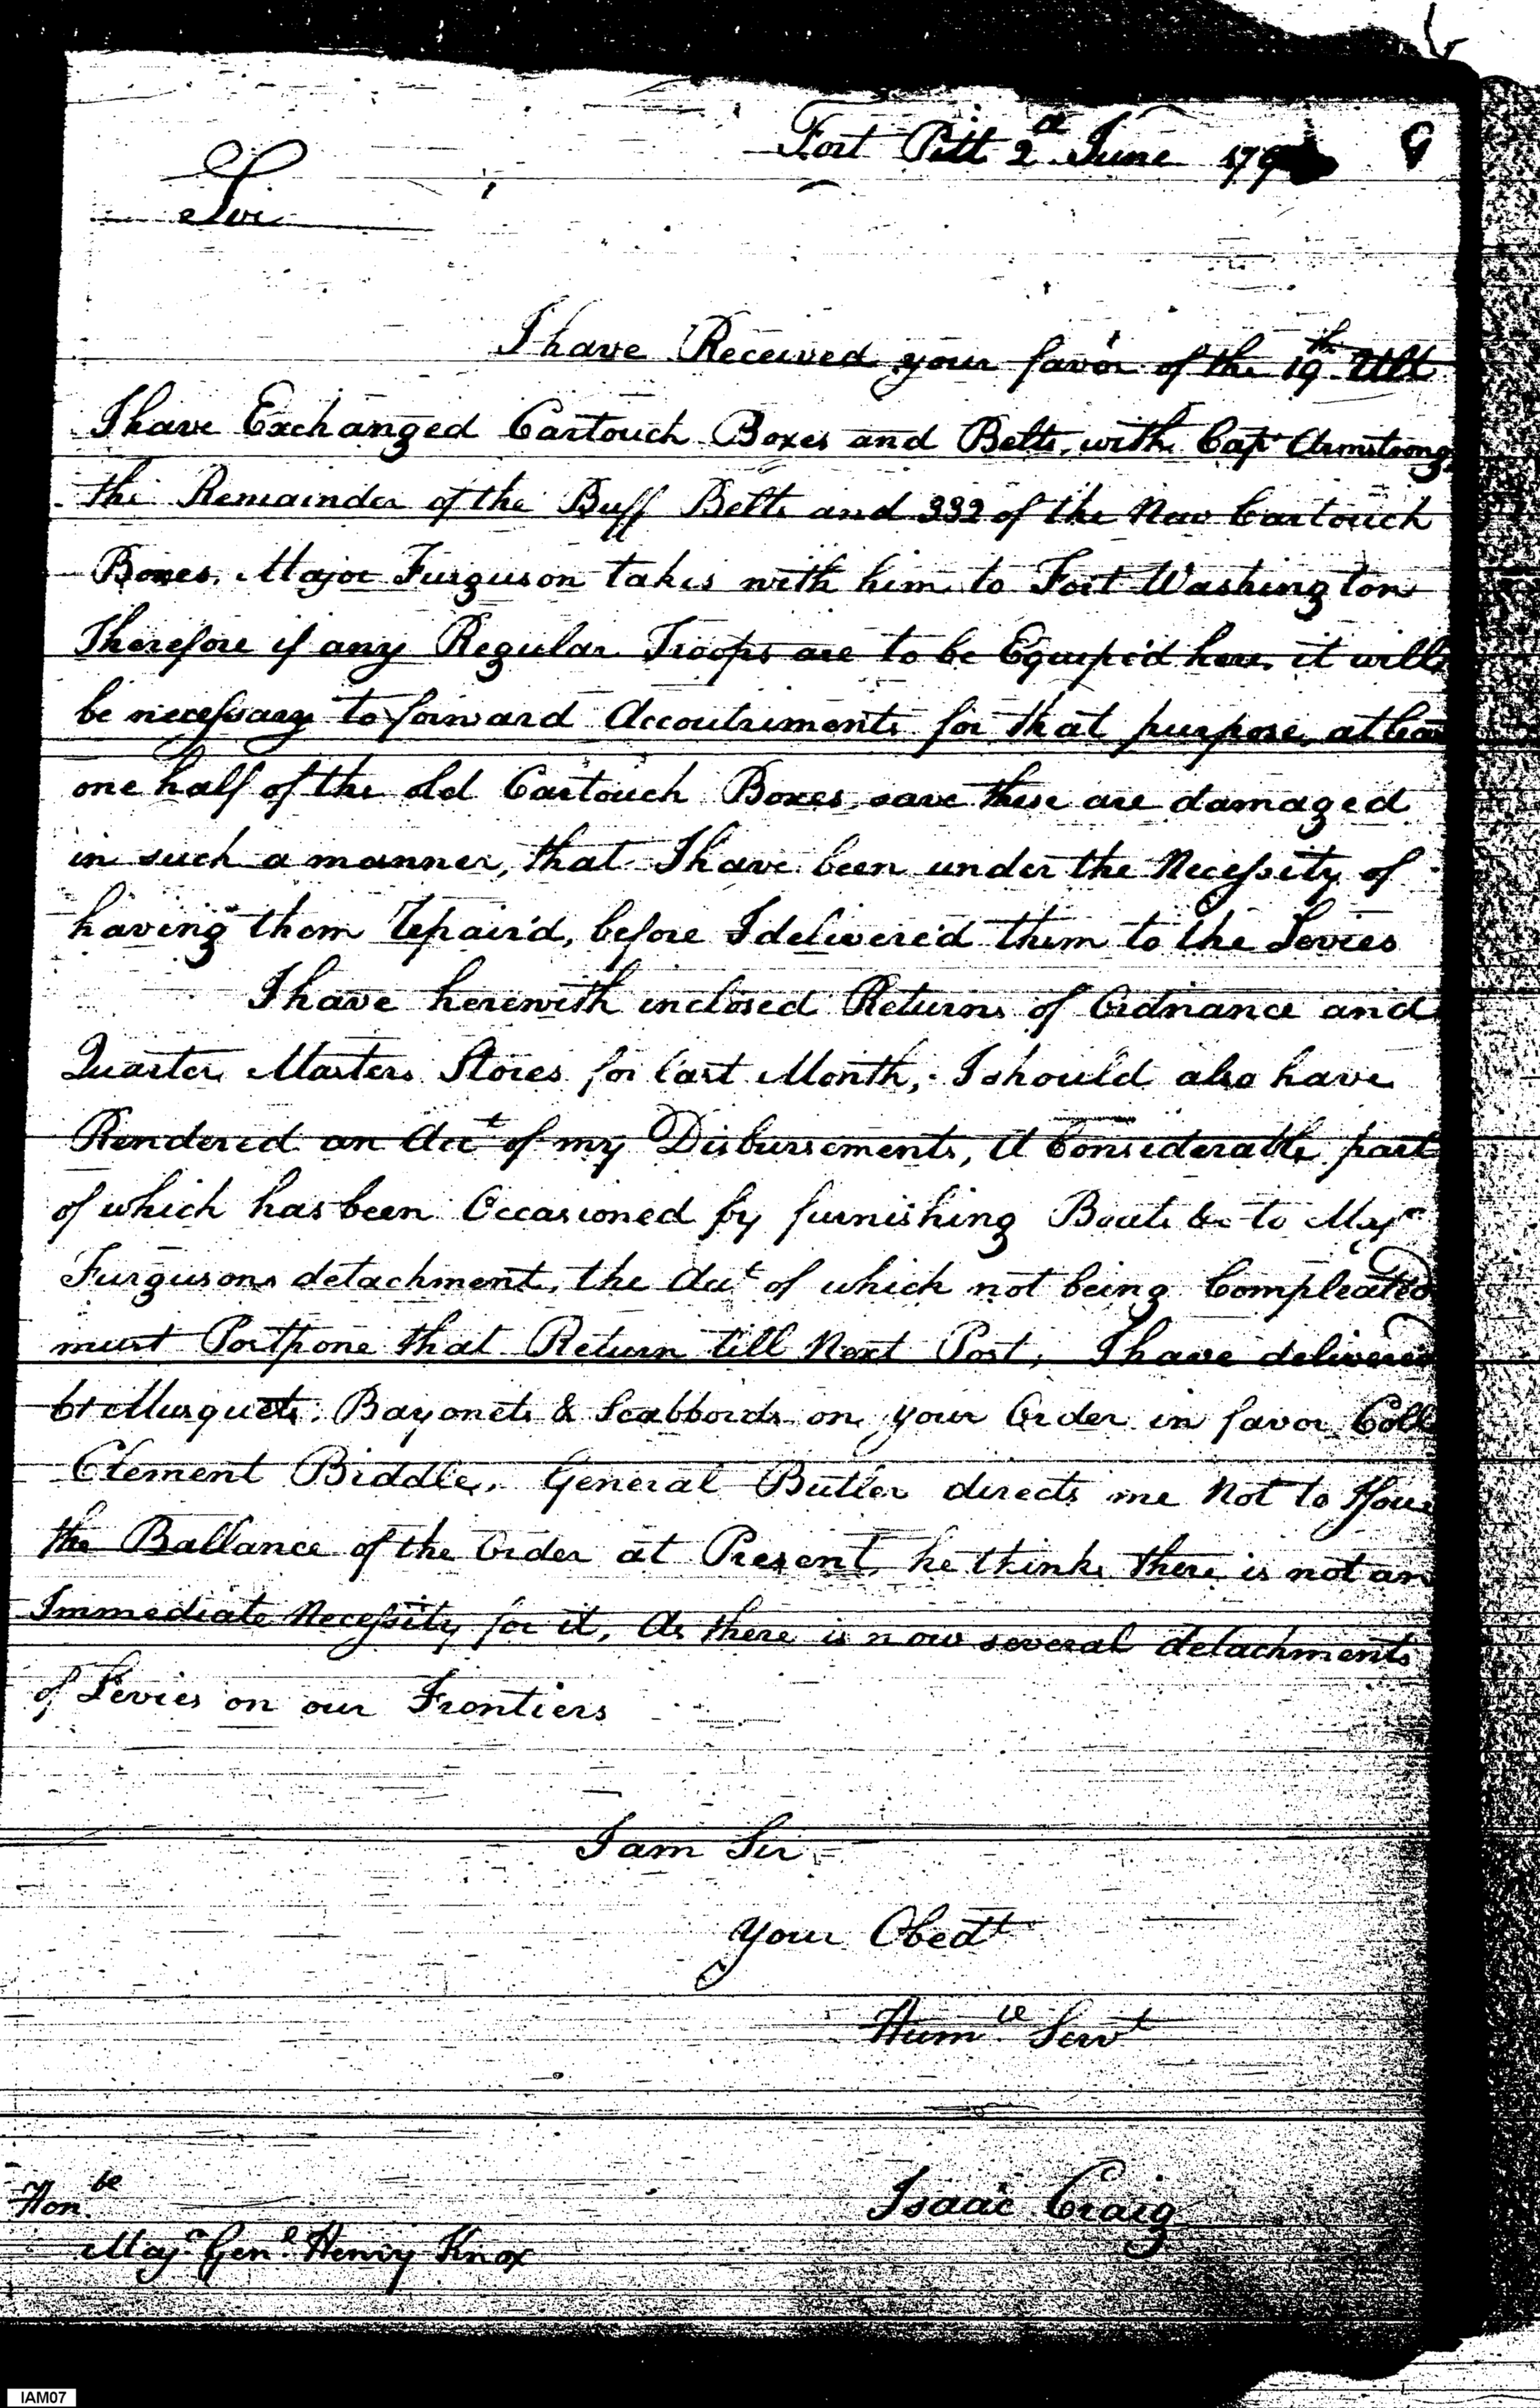 Fort Pitt 2d June 179 9
Sir
I have Received your favor of the 19th Ult
I have Exchanged Cartouch Boxes and Belts, with Capt Armstrong
the Remainder of the Buff Belts and 332 of the New Cartouch
Boxes, Major Furguson takes with him to Fort Washington
Therefore if any Regular Troops are to be Equip'd here, it will
be necessary to forward Accoutrements for that purpose, at leas
one half of the old Cartouch Boxes, save these are damaged
in such a manner, that I have been under the Necessity of
having them repair'd, before I deliver'd them to the Levies
I have herewith inclosed Returns of Ordnance and
Quarter Masters Stores for last Month, I should also have
Rendered an Acct of my Disbursements, A Considerable part
of which has been Occasioned by furnishing Boats &c to Majr
Furgusons detachment, the Acct of which not being Compleated
must Postpone that Return till Next Post, I have delivered
61 Musquets, Bayonets & Scabbords on your Order in favor Coll
Clement Biddle, General Butler directs me Not to Issue
the Ballance of the Order at Present, he thinks there is not an
Immediate Necessity for it, As there is now several detachments
of Levies on our Frontiers
I am Sir
Your Obedt
Humle Servt
Isaac Craig
Honbe
Majr Genl Henry Knox
IAM07